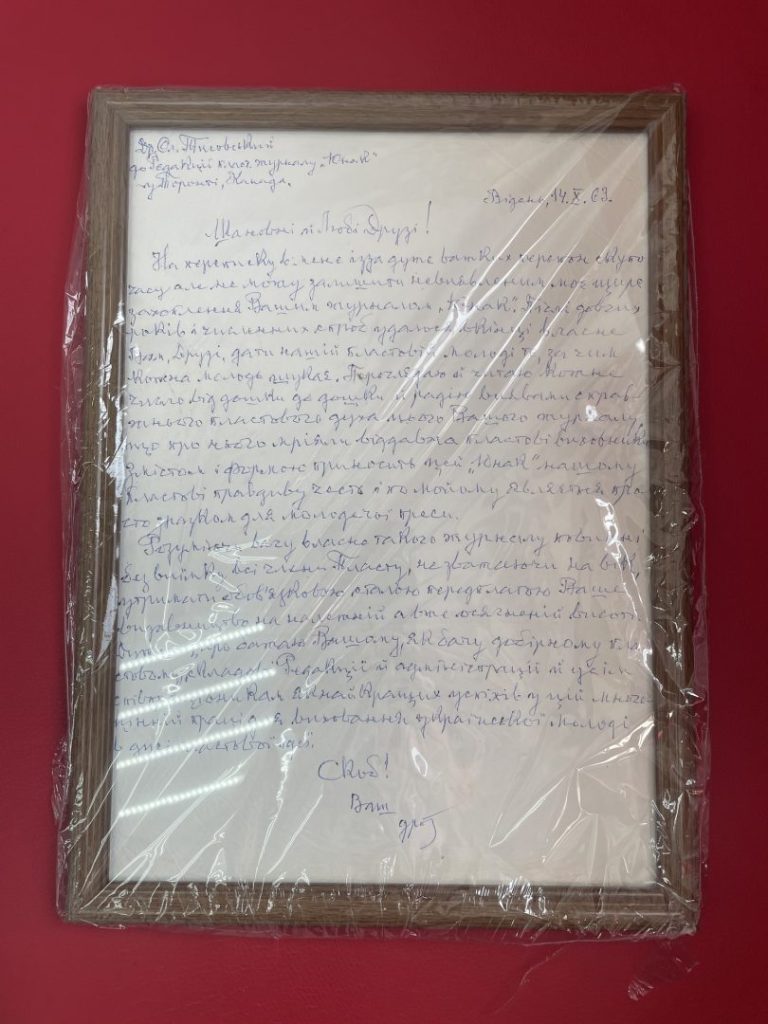 Др. Ол. Тисовський
до Редакції пласт. журналу „Юнак“
у Торонті, Канада.
Відень, 14.X.63.
Шановні й Любі Друзі!
На переписку в мене ізза дуже важких скуто
часу але не можу залишити невиявленим моє щире
захоплення Вашим журналом „Юнак“. Після довгих
років і численних спроб удалося вкінці власне
Вам, Друзі, дати нашій пластовій молоді те, за чим
кожна молодь шукає. Переглядаю й читаю кожне
число від дошки до дошки й радію виявами справ
жнього пластового духа Вашого журналу,
що про нього мріяли віддавна пластові виховники
Змістом і формою приносить цей „Юнак“ нашому
Пластові правдиву честь і по мойому являється
для молодечої преси.
вагу власне такого журналу повинні
без виїмку всі члени Пласту, не зважаючи на вік,
утримати обов'язковою сталою передплатою Ваше
видавництво на належній а вже осягненій висоті.
Вашому, як бачу добірному
складові Редакції й адміністрації й усім
якнайкращих успіхів у цій
праці виховання української молоді
в дусі пластової ідеї.
СКОБ!
Ваш